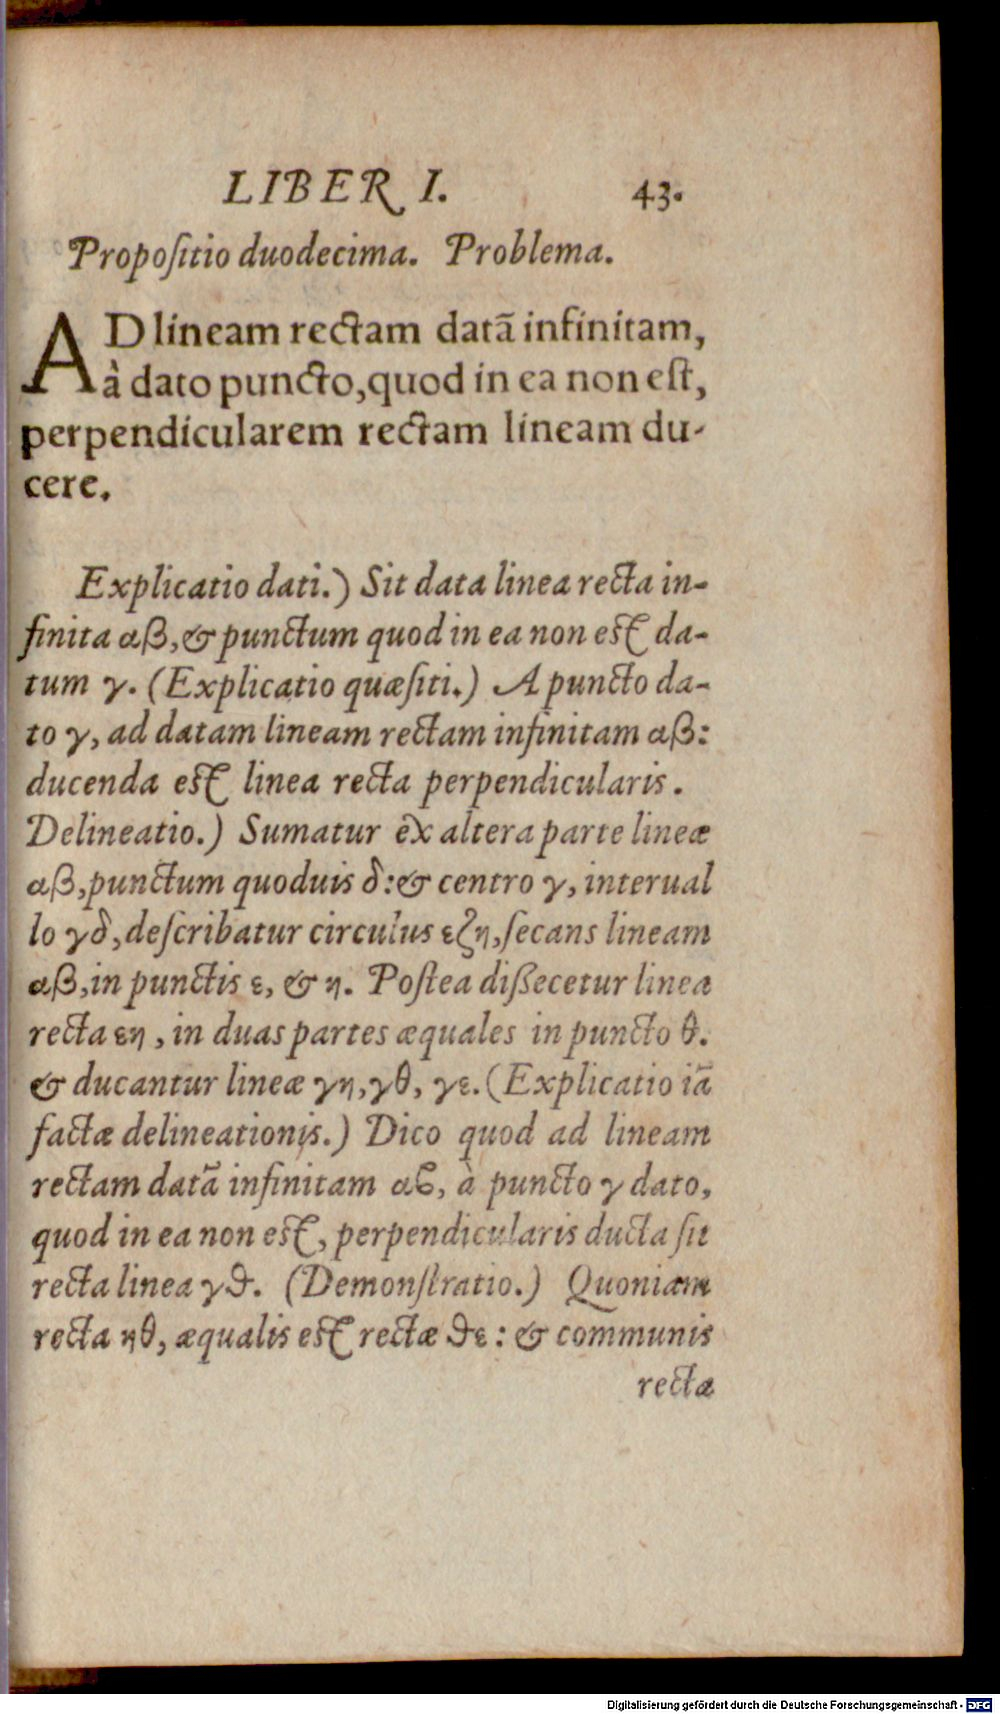 LIBER I. 43.
Propoſitio duodecima. Problema.
AD lineam rectam datā infinitam,
à dato puncto, quod in ea non eſt,
perpendicularem rectam lineam du-
cere.
Explicatio dati.) Sit data linea recta in-
finita αβ, & punctum quod in ea non eſt da-
tum γ. (Explicatio quæſiti.) A puncto da-
to γ, ad datam lineam rectam infinitam αβ:
ducenda eſt linea recta perpendicularis.
Delineatio.) Sumatur ex altera parte lineæ
αβ, punctum quoduis δ: & centro γ, interual
lo γδ, deſcribatur circulus εζη, ſecans lineam
αβ, in punctis ε, & η. Poſtea dißecetur linea
recta εη, in duas partes æquales in puncto θ.
& ducantur lineæ γη, γθ, γε. (Explicatio iā
factæ delineationis.) Dico quod ad lineam
rectam datā infinitam αϐ, à puncto γ dato,
quod in ea non eſt, perpendicularis ducta ſit
recta linea γϑ. (Demonſtratio.) Quoniam
recta ηθ, æqualis eſt rectæ ϑε: & communis
recta
Digitalisierung gefördert durch die Deutsche Forschungsgemeinschaft - DFG